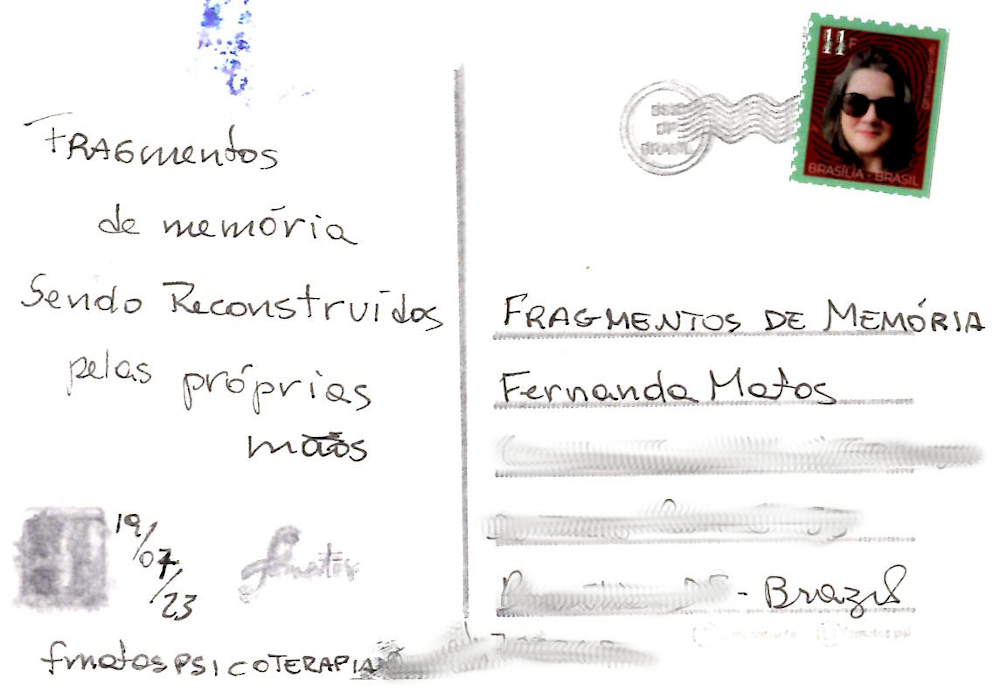 Fragmentos
de memória
Sendo Reconstruídos
pelas próprias
mãos
19/07/23
fmatosPSICOTERAPIA
11
BRASÍLIA - BRASIL
BRASIL
FRAGMENTOS DE MEMÓRIA
Fernanda Matos
- Brazil